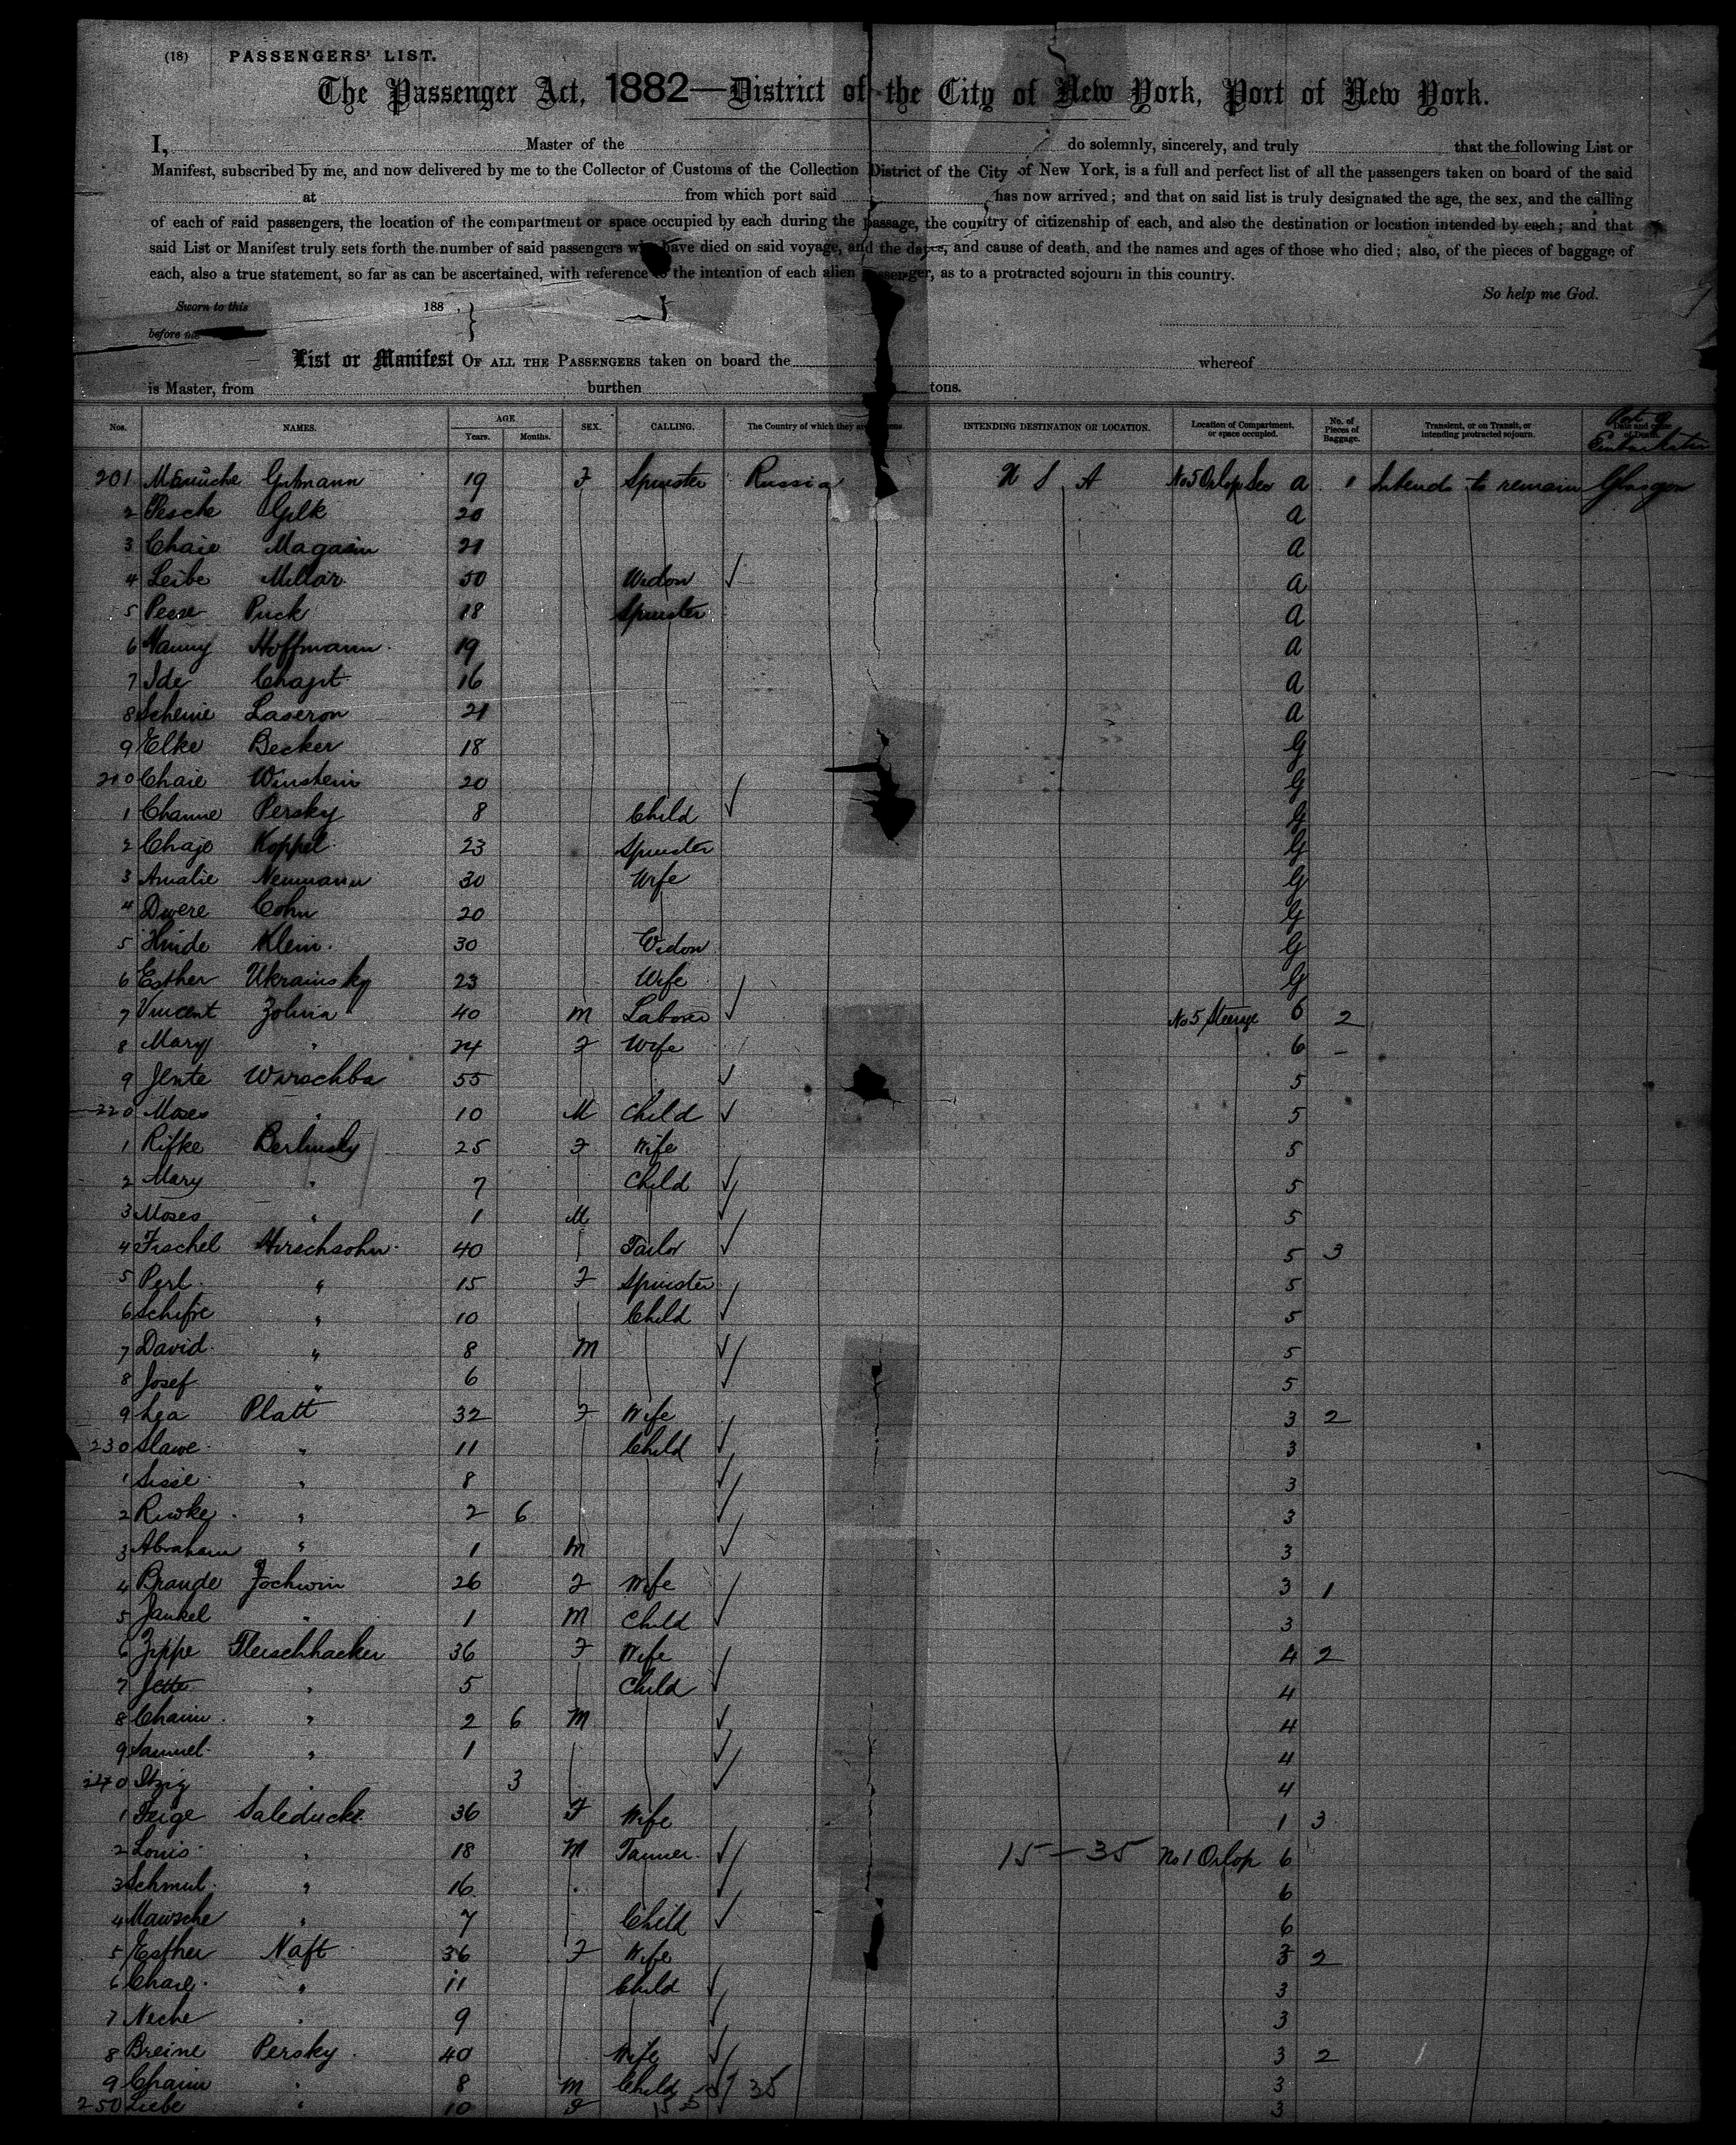 (18) PASSENGERS' LIST.
The Passenger Act, 1882—District of the City of New York, Port of New York.
I, Master of the do solemnly, sincerely, and truly that the following List or
Manifest, subscribed by me, and now delivered by me to the Collector of Customs of the Collection District of the City of New York, is a full and perfect list of all the passengers taken on board of the said
at from which port said has now arrived; and that on said list is truly designated the age, the sex, and the calling
of each of said passengers, the location of the compartment or space occupied by each during the passage, the country of citizenship of each, and also the destination or location intended by each; and that
said List or Manifest truly sets forth the number of said passengers who have died on said voyage, and the dates, and cause of death, and the names and ages of those who died; also, of the pieces of baggage of
each, also a true statement, so far as can be ascertained, with reference to the intention of each alien passenger, as to a protracted sojourn in this country.
So help me God.
Sworn to this 188 ,
before me
List or Manifest OF ALL THE PASSENGERS taken on board the whereof
is Master, from burthen tons.
Nos. NAMES. AGE Years. Months. SEX. CALLING. The Country of which they are INTENDING DESTINATION OR LOCATION. Location of Compartment, or space occupied. No. of Pieces of Baggage. Transient, or on Transit, or intending protracted sojourn. Date and cause of Death.
201 Gutmann 19 F Spinster Russia U S A No 5 Orlop a 1 Intends to remain Glasgow
2 Pesche 20 a
3 Chaie Magasin 21 a
4 Leibe Millar 50 Widow a
5 Pesse Puck 18 Spinster a
6 Nanny Hoffmann 19 a
7 Ide 16 a
8 Scheine Laseron 21 a
9 Elke Becker 18 G
210 Chaie Winstein 20 G
1 Channe Persky 8 Child G
2 Chaje Koppel 23 Spinster G
3 Amalie Neumann 30 Wife G
4 Dwere Cohn 20 G
5 Hinde Klein 30 Widow G
6 Esther Ukrainsky 23 Wife G
7 Vincent 40 M Laborer No 5 Steerage 6 2
8 Mary " 24 F Wife 6 -
9 Jente Warschba 55 5
220 Moses " 10 M Child 5
1 Rifke Berlinsky 25 F Wife 5
2 Mary " 7 Child 5
3 Moses " 1 M 5
4 Fischel Hirschsohn 40 Tailor 5 3
5 Perl " 15 F Spinster 5
6 Schifre " 10 Child 5
7 David " 8 M 5
8 Josef " 6 5
9 Lea Platt 32 F Wife 3 2
230 Slawe " 11 Child 3
1 Sisse " 8 3
2 Riwke " 2 6 3
3 Abraham " 1 M 3
4 Braude Jochwin 26 F Wife 3 1
5 Jankel " 1 M Child 3
6 Zippe Fleischhacker 36 F Wife 4 2
7 Jette " 5 Child 4
8 Chaim " 2 6 M 4
9 Samuel " 1 4
240 Itzig " 3 4
1 Feige 36 F Wife 1 3
2 Louis " 18 M Tanner 15 - 35 No 1 Orlop 6
3 Schmul " 16 6
4 Mawsche " 7 Child 6
5 Esther Naft 36 F Wife 3 2
6 Chaie " 11 Child 3
7 Neche " 9 3
8 Breine Persky 40 Wife 3 2
9 Chaim " 8 M Child 35 3
250 Liebe " 10 F 3